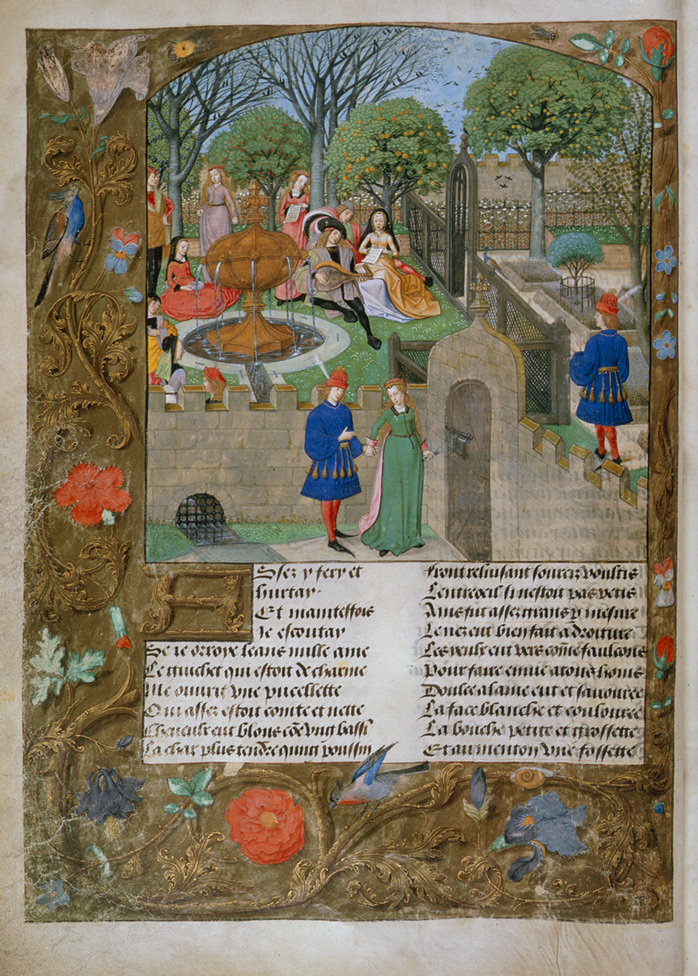 Assez y fery et
hurtay
Et maintesfois
Je escoutay
Se ie orroye leans nulle ame
Le guichet qui estoit de charme
Me ouurit vne pucellette
Qui assez estoit cointe et nette
Cheueulx eut blons cõe vng bassī
La char plus tendre qung poussin
Front reluisant sourcilz voultis
Lentreoeil si nestoit pas petis
Ains fut assez grans p mesure
Le nez eut bien fait a droiture
Les yeulx eut vers cõme faulcons
Pour faire enuie a tous homs
Doulce alaine eut et sauouree
La face blanche et coulouree
La bouche petite et grossette
Et au menton vne fossette